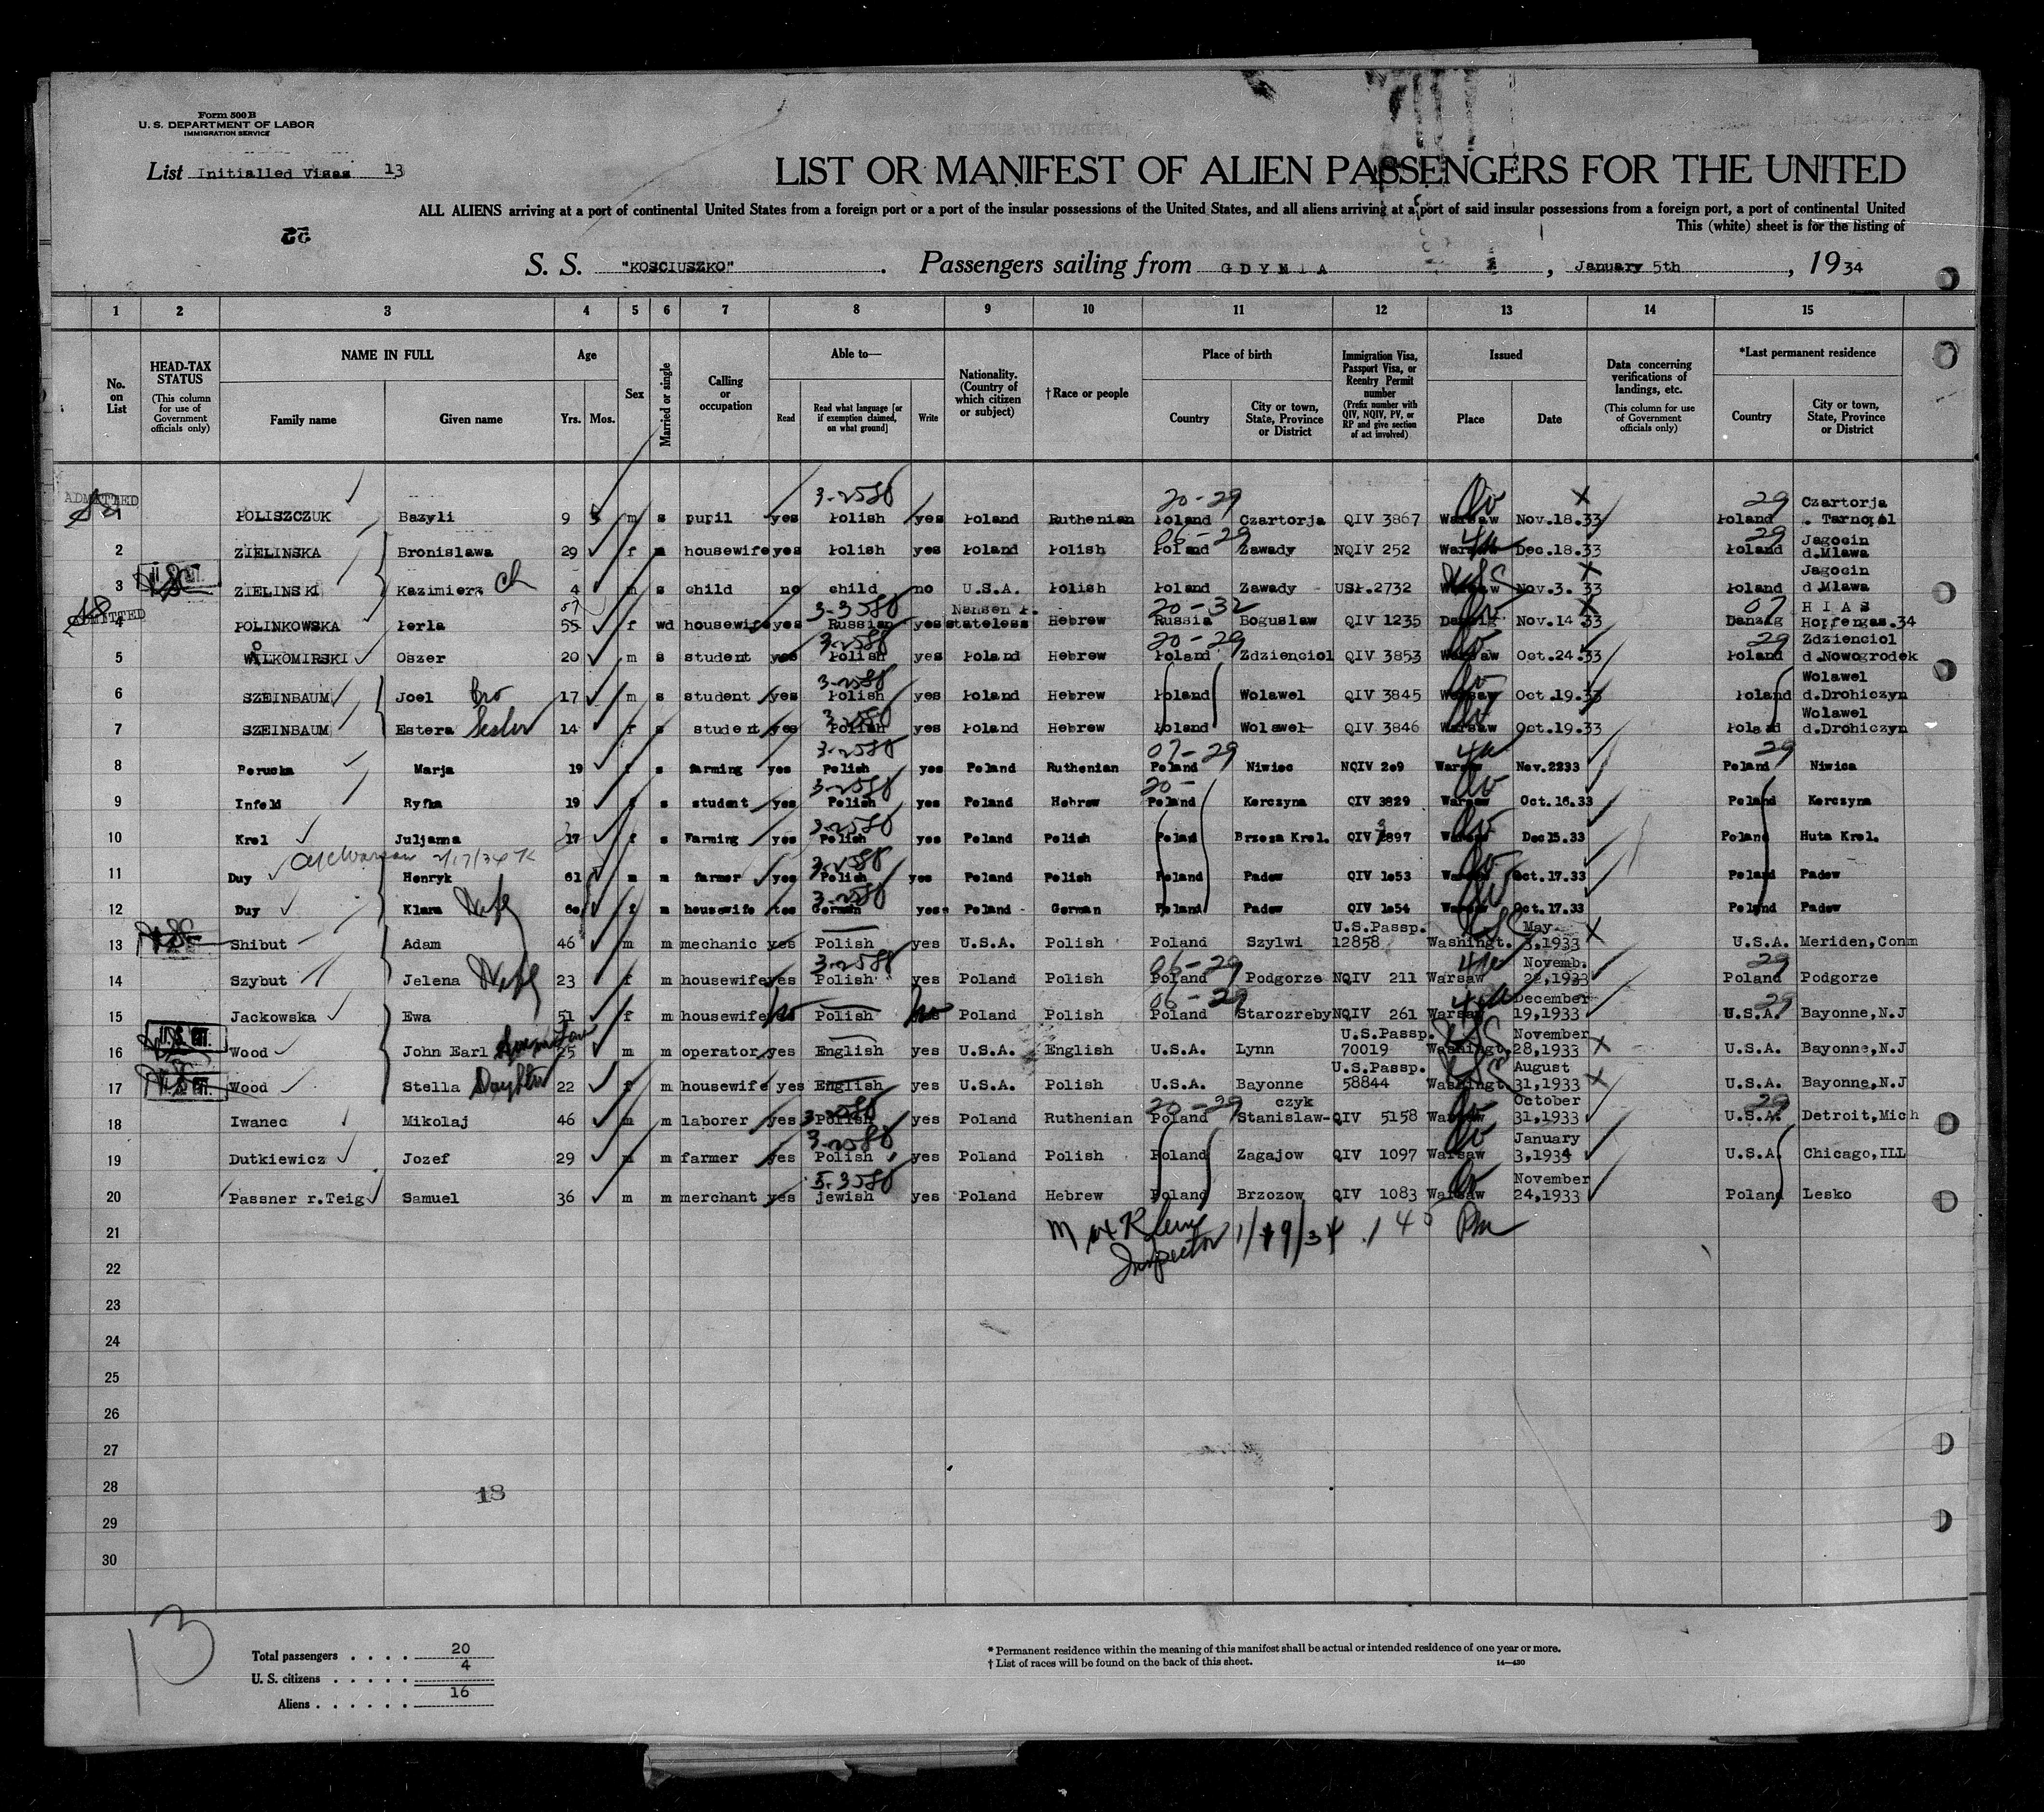 Form 500 B
U. S. DEPARTMENT OF LABOR
IMMIGRATION SERVICE
List Initialled Visas 13
LIST OR MANIFEST OF ALIEN PASSENGERS FOR THE UNITED
ALL ALIENS arriving at a port of continental United States from a foreign port or a port of the insular possessions of the United States, and all aliens arriving at a port of said insular possessions from a foreign port, a port of continental United
This (white) sheet is for the listing of
S. S. "KOSCIUSZKO" . Passengers sailing from GDYNIA , January 5th , 1934
1 2 3 4 5 6 7 8 9 10 11 12 13 14 15
No. on List
HEAD-TAX STATUS (This column for use of Government officials only)
NAME IN FULL Family name Given name
Age Yrs. Mos.
Sex
Married or single
Calling or occupation
Able to— Read Read what language [or if exemption claimed, on what ground] Write
Nationality. (Country of which citizen or subject)
† Race or people
Place of birth Country City or town, State, Province or District
Immigration Visa, Passport Visa, or Reentry Permit number (Prefix number with QIV, NQIV, PV, or RP and give section of act involved)
Issued Place Date
Data concerning verifications of landings, etc. (This column for use of Government officials only)
*Last permanent residence Country City or town, State, Province or District
ADMITTED 3-2580 20-29 X 29 Czartorja
1 POLISZCZUK Bazyli 9 m s pupil yes Polish yes Poland Ruthenian Poland Czartorja QIV 3867 Warsaw Nov.18.33 Poland . Tarnopol
06-29 29 Jagocin
2 ZIELINSKA Bronislawa 29 f m housewife yes Polish yes Poland Polish Poland Zawady NQIV 252 Warsaw Dec.18.33 Poland d.Mlawa
X Jagocin
3 ZIELINSKI Kazimierz Ch 4 m s child no child no U.S.A. Polish Poland Zawady USP.2732 Warsaw Nov.3. 33 Poland d Mlawa
57 3-3580 Nansen P. 20-32 X 07 H I A S
4 POLINKOWSKA Perla 55 f wd housewife yes Russian yes stateless Hebrew Russia Boguslaw QIV 1235 Danzig Nov.14 33 Danzig Hopfengas.34
3-2580 20-29 29 Zdzienciol
5 WILKOMIRSKI Oszer 20 m s student yes Polish yes Poland Hebrew Poland Zdzienciol QIV 3853 Warsaw Oct.24.33 Poland d.Nowogrodek
3-2580 Wolawel
6 SZEINBAUM Joel Bro 17 m s student yes Polish yes Poland Hebrew Poland Wolawel QIV 3845 Warsaw Oct.19.33 Poland d.Drohiczyn
3-2580 Wolawel
7 SZEINBAUM Estera Sister 14 f s student yes Polish yes Poland Hebrew Poland Wolawel QIV 3846 Warsaw Oct.19.33 Poland d.Drohiczyn
3-2580 07-29 29
8 Perucka Marja 19 f s farming yes Polish yes Poland Ruthenian Poland Niwiec NQIV 209 Warsaw Nov.2233 Poland Niwica
3-2580 20-
9 Infeld Ryfka 19 f s student yes Polish yes Poland Hebrew Poland Korczyna QIV 3829 Warsaw Oct.16.33 Poland Korczyna
3-2580
10 Krol Juljanna 17 f s Farming yes Polish yes Poland Polish Poland Brzoza Krol. QIV 3897 Warsaw Dec15.33 Poland Huta Krol.
3-2580
11 Duy Henryk 61 m m farmer yes Polish yes Poland Polish Poland Padew QIV 1053 Warsaw Oct.17.33 Poland Padew
3-2580
12 Duy Klara Wife 60 f m housewife yes German yes Poland German Poland Padew QIV 1054 Warsaw Oct.17.33 Poland Padew
U.S.Passp. May X
13 Shibut Adam 46 m m mechanic yes Polish yes U.S.A. Polish Poland Szylwi 12858 Washingt. 3,1933 U.S.A. Meriden,Conn
3-2580 06-29 Novemb. 29
14 Szybut Jelena Wife 23 f m housewife yes Polish yes Poland Polish Poland Podgorze NQIV 211 Warsaw 22,1933 Poland Podgorze
06-29 December 29
15 Jackowska Ewa 51 f m housewife no Polish no Poland Polish Poland Starozreby NQIV 261 Warsaw 19,1933 U.S.A. Bayonne,N.J
U.S. CIT. U.S.Passp. November
16 Wood John Earl Son in Law 25 m m operator yes English yes U.S.A. English U.S.A. Lynn 70019 Washingt. 28,1933 X U.S.A. Bayonne,N.J
U.S. CIT. U.S.Passp. August
17 Wood Stella Daughter 22 f m housewife yes English yes U.S.A. Polish U.S.A. Bayonne 58844 Washingt. 31,1933 X U.S.A. Bayonne,N.J
3-2580 20-29 czyk October 29
18 Iwanec Mikolaj 46 m m laborer yes Polish yes Poland Ruthenian Poland Stanislaw- QIV 5158 Warsaw 31,1933 U.S.A. Detroit,Mich
3-2580 January
19 Dutkiewicz Jozef 29 m m farmer yes Polish yes Poland Polish Poland Zagajow QIV 1097 Warsaw 3,1934 U.S.A. Chicago,ILL
3.3580 November
20 Passner r.Teig Samuel 36 m m merchant yes jewish yes Poland Hebrew Poland Brzozow QIV 1083 Warsaw 24,1933 Poland Lesko
21 Max Klein
Inspector 1/19/34 Pm
22
23
24
25
26
27
28
18
29
30
13
Total passengers . . . . 20
U. S. citizens . . . . . 4
Aliens . . . . . . 16
* Permanent residence within the meaning of this manifest shall be actual or intended residence of one year or more.
† List of races will be found on the back of this sheet. 14—430